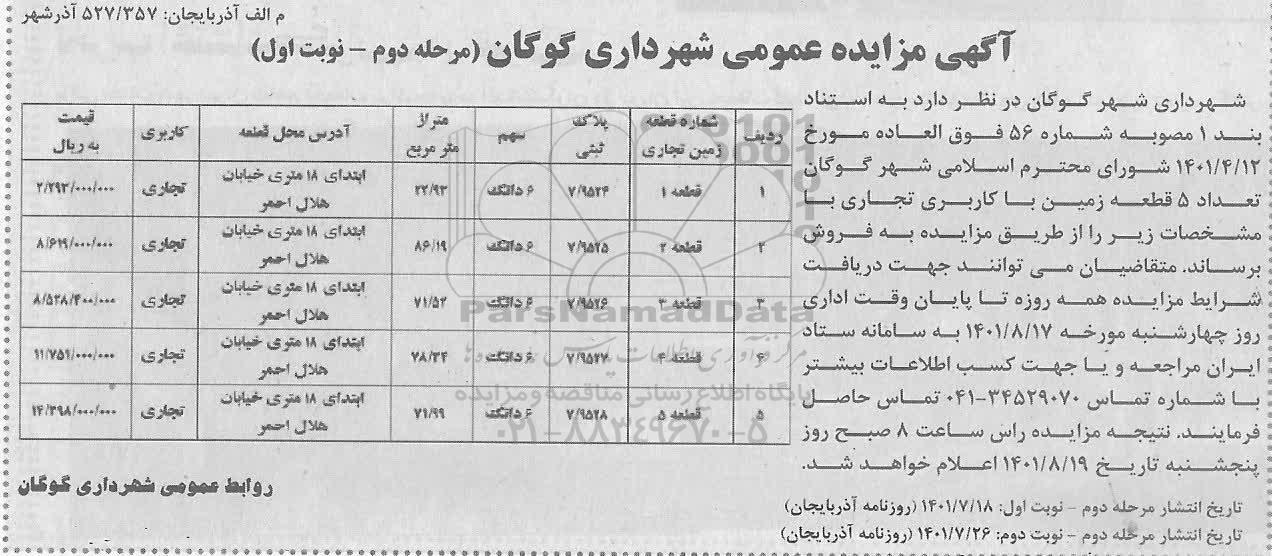 م الف آذربایجان: ۵۲۷/۳۵۷ آذرشهر
آگهی مزایده عمومی شهرداری گوگان (مرحله دوم - نوبت اول)
شهرداری شهر گوگان در نظر دارد به استناد
بند ۱ مصوبه شماره ۵۶ فوق العاده مورخ
۱۴۰۱/۴/۱۲ شورای محترم اسلامی شهر گوگان
تعداد ۵ قطعه زمین با کاربری تجاری با
مشخصات زیر را از طریق مزایده به فروش
برساند. متقاضیان می توانند جهت دریافت
شرایط مزایده همه روزه تا پایان وقت اداری
روز چهارشنبه مورخه ۱۴۰۱/۸/۱۷ به سامانه ستاد
ایران مراجعه و یا جهت کسب اطلاعات بیشتر
با شماره تماس ۳۴۵۲۹۰۷۰-۰۴۱ تماس حاصل
فرمایند. نتیجه مزایده راس ساعت ۸ صبح روز
پنجشنبه تاریخ ۱۴۰۱/۸/۱۹ اعلام خواهد شد.
تاریخ انتشار مرحله دوم - نوبت اول: ۱۴۰۱/۷/۱۸ (روزنامه آذربایجان)
تاریخ انتشار مرحله دوم - نوبت دوم: ۱۴۰۱/۷/۲۶ (روزنامه آذربایجان)
ردیف شماره قطعه زمین تجاری پلاک ثبتی سهم متراژ متر مربع آدرس محل قطعه کاربری قیمت به ریال
۱ قطعه ۱ ۷/۹۵۲۴ ۶ دانگ ۲۲/۹۳ ابتدای ۱۸ متری خیابان هلال احمر تجاری ۲/۲۹۳/۰۰۰/۰۰۰
۲ قطعه ۲ ۷/۹۵۲۵ ۶ دانگ ۸۶/۱۹ ابتدای ۱۸ متری خیابان هلال احمر تجاری ۸/۶۱۹/۰۰۰/۰۰۰
۳ قطعه ۳ ۷/۹۵۲۶ ۶ دانگ ۷۱/۵۲ ابتدای ۱۸ متری خیابان هلال احمر تجاری ۸/۵۲۸/۴۰۰/۰۰۰
۴ قطعه ۴ ۷/۹۵۲۷ ۶ دانگ ۷۸/۳۴ ابتدای ۱۸ متری خیابان هلال احمر تجاری ۱۱/۷۵۱/۰۰۰/۰۰۰
۵ قطعه ۵ ۷/۹۵۲۸ ۶ دانگ ۷۱/۹۹ ابتدای ۱۸ متری خیابان هلال احمر تجاری ۱۴/۳۹۸/۰۰۰/۰۰۰
روابط عمومی شهرداری گوگان
ParsNamadData
پایگاه اطلاع رسانی مناقصه و مزایده
۰۲۱-۸۸۳۴۹۶۷۰-۵